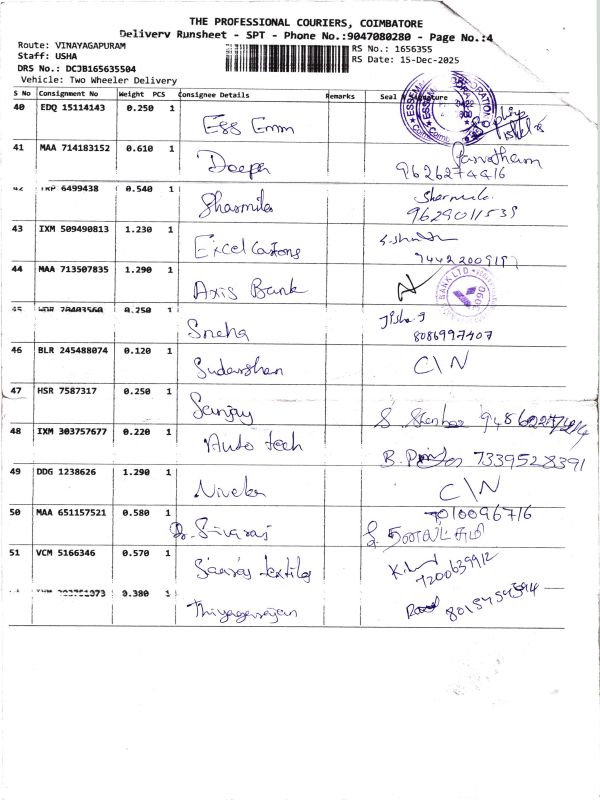 THE PROFESSIONAL COURIERS, COIMBATORE
Delivery Runsheet - SPT - Phone No.:9047080280 - Page No.:4
Route: VINAYAGAPURAM
Staff: USHA
DRS No.: DCJB165635504
Vehicle: Two Wheeler Delivery
RS No.: 1656355
RS Date: 15-Dec-2025
S No Consignment No Weight PCS Consignee Details Remarks Seal
40 EDQ 15114143 0.250 1
Ess Emm
41 MAA 714183152 0.610 1
Deepa Parvatham
9626274416
42 6499438 0.540 1
Sharmila Sharmila
9629011539
43 IXM 509490813 1.230 1
Excel Cartons
44 MAA 713507835 1.290 1
Axis Bank
BANK LTD.
45 0.250 1
Sneha Jisha J
8086997407
46 BLR 245488074 0.120 1
Sudarshan C\N
47 HSR 7587317 0.250 1
Sanjay
48 IXM 303757677 0.220 1
Auto tech 7339528391
49 DDG 1238626 1.290 1
Niveka C\N
50 MAA 651157521 0.580 1
Sivaraj 7010096716
51 VCM 5166346 0.570 1
textiles 7200639912
0.380 1
Thiyagarajan